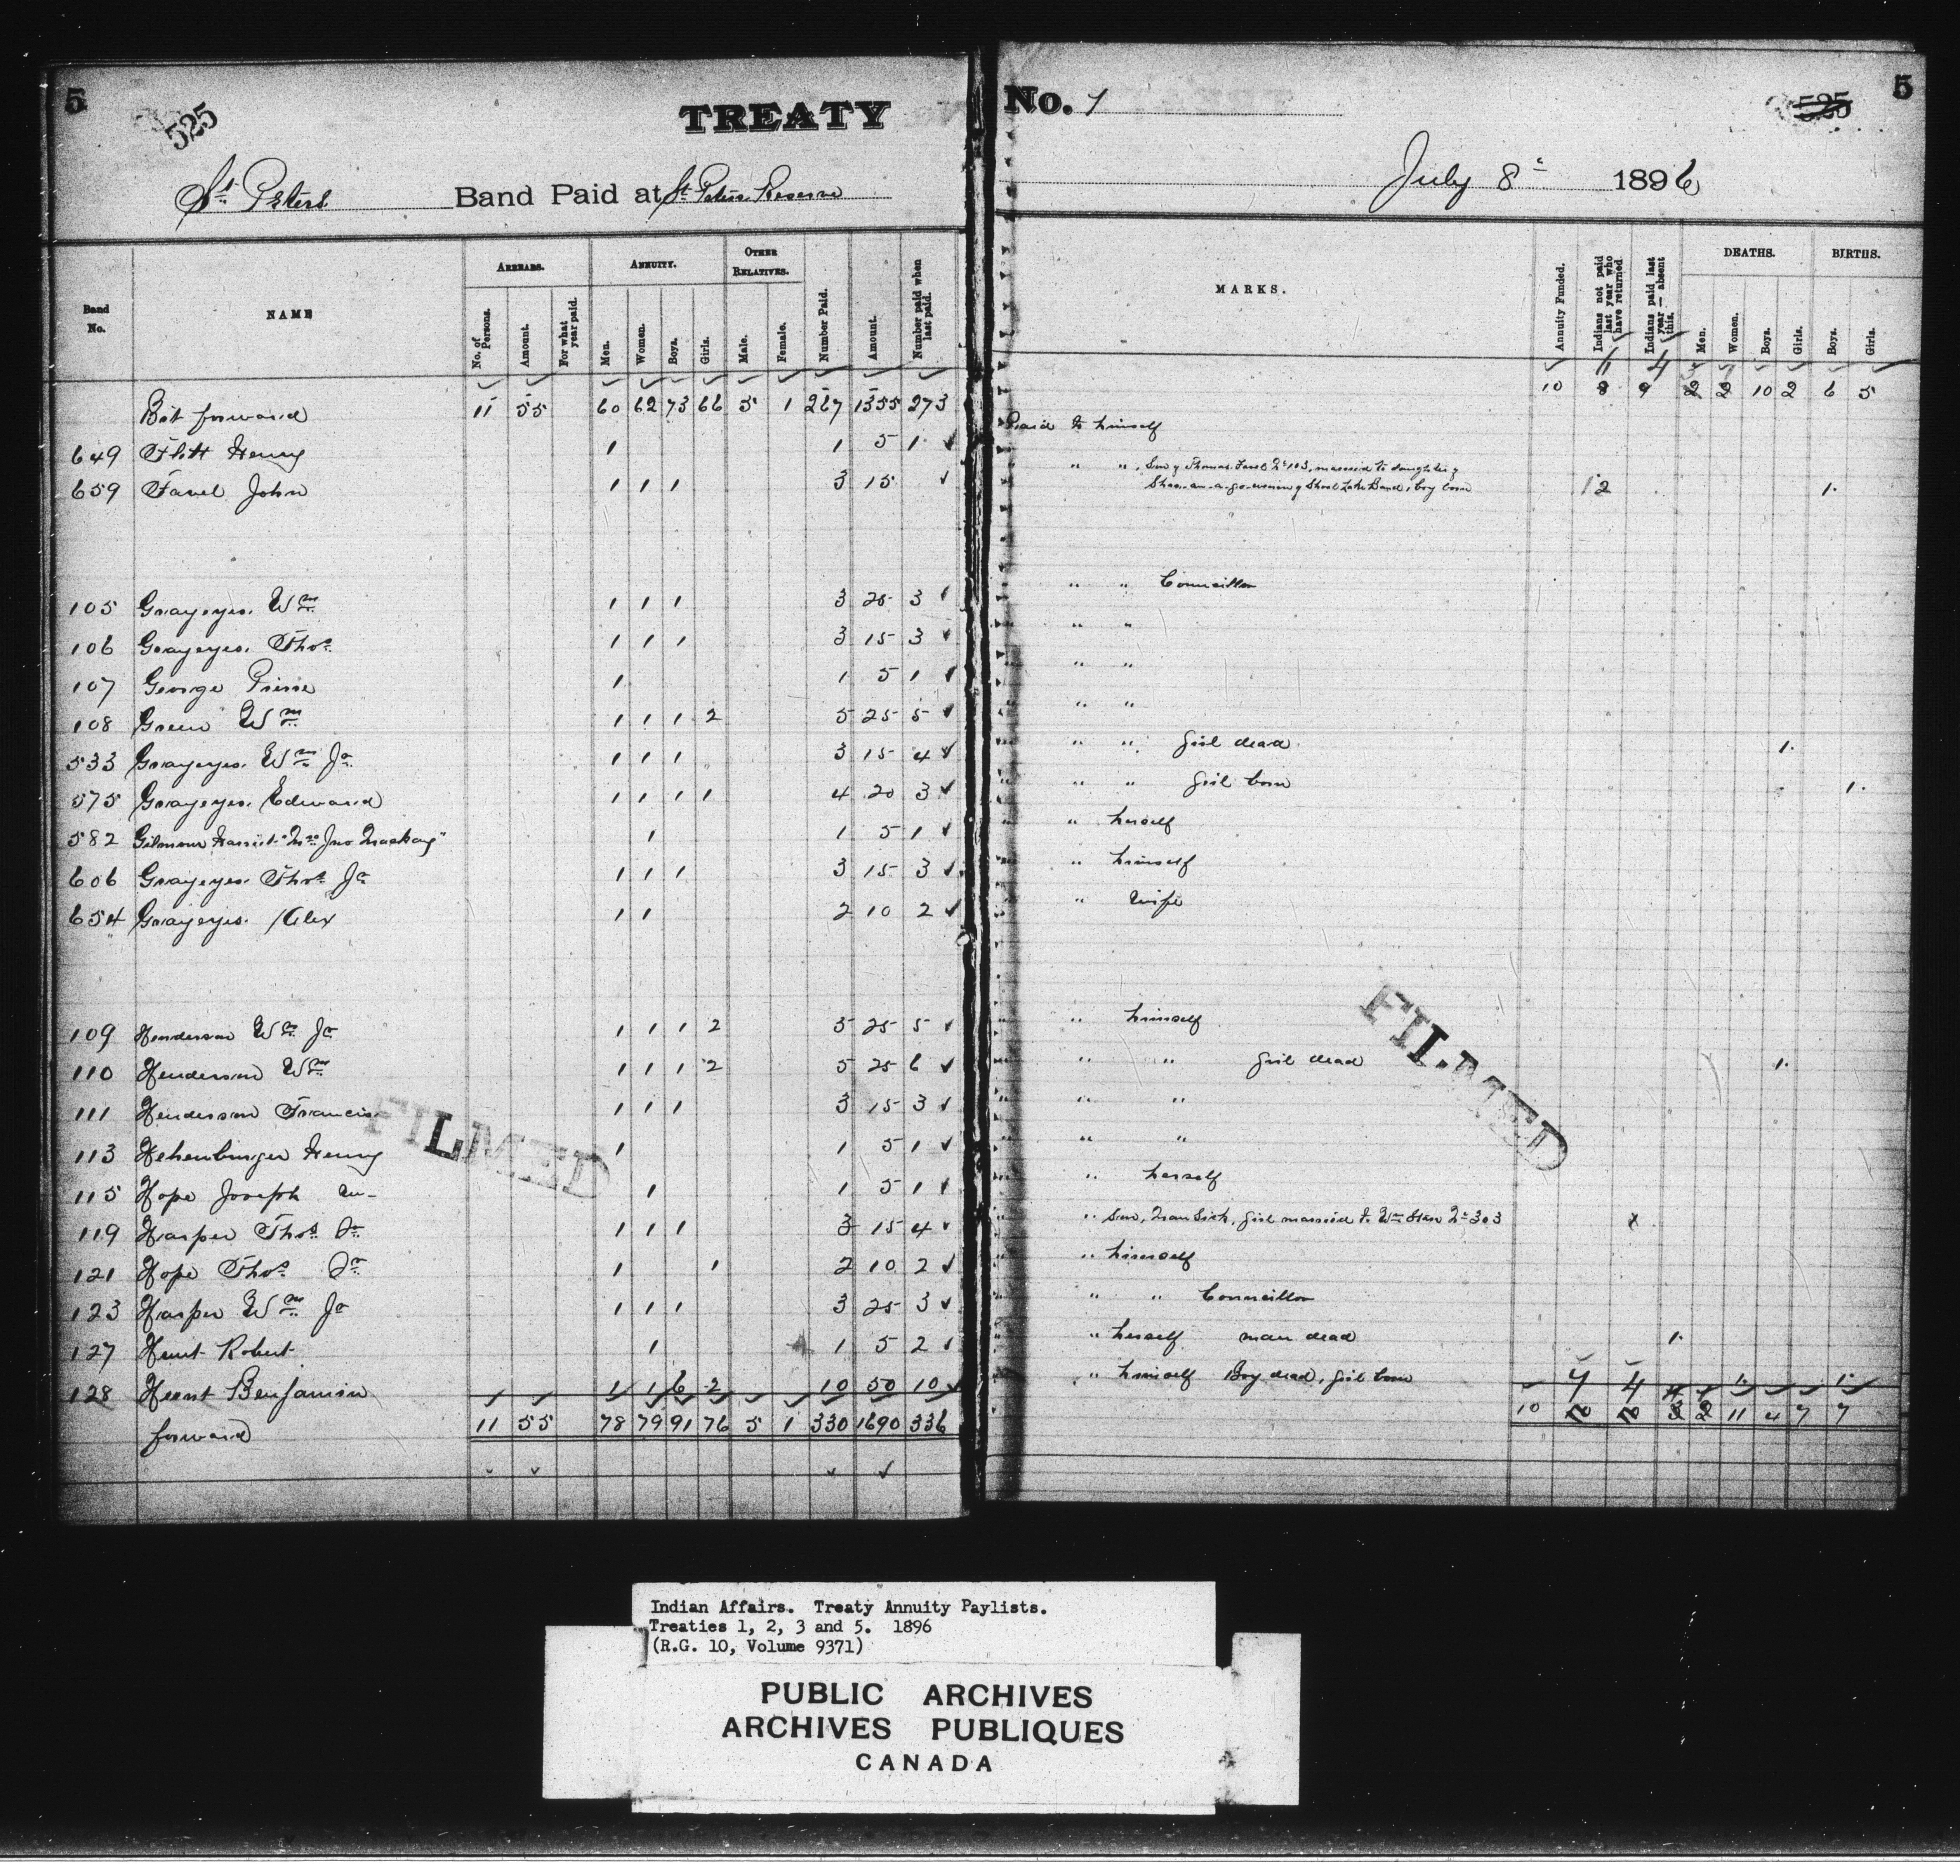 5 525 TREATY No. 1 525 5
St. Peters Band Paid at St. Peters Reserve July 8th 1896
Band No. NAME ARREARS. No. of Persons. Amount. For what year paid. ANNUITY. Men. Women. Boys. Girls. OTHER RELATIVES. Male. Female. Number Paid. Amount. Number paid when last paid. MARKS. Annuity Funded. Indians not paid last year who have returned Indians paid last year — absent this. DEATHS. Men. Women. Boys. Girls. BIRTHS. Boys. Girls.
Bot forward 11 55 60 62 73 66 5 1 267 1355 273 10 9 10 2 6 5
649 Flett Henry 1 1 5 1 Paid to himself
659 Favel John 1 1 1 3 15 " " Son of Thomas Favel No 103, married to daughter of
Lake Band, boy born 2 1
105 Grayeyes. Wm 1 1 1 3 25 3 " " Councillor
106 Grayeyes. Thos 1 1 1 3 15 3 " "
107 George Pierre 1 1 5 1 " "
108 Green Wm 1 1 1 2 5 25 5 " "
533 Grayeyes. Wm Jr 1 1 1 3 15 4 " " girl dead 1
575 Grayeyes. Edward 1 1 1 1 4 20 3 " " girl born 1
582 Gilmour Harriet "Mrs Jno Mackay" 1 1 5 1 " herself
606 Grayeyes. Thos Jr 1 1 1 3 15 3 " himself
654 Grayeyes. Alex 1 1 2 10 2 " Wife
109 Henderson Wm Jr 1 1 1 2 5 25 5 " himself
110 Henderson Wm 1 1 1 2 5 25 6 " " girl dead 1
111 Henderson Francis 1 1 1 3 15 3 " "
113 Henry 1 1 5 1 " "
115 Hope Joseph 1 1 5 1 " herself
119 Harper Thos Sr 1 1 1 3 15 4 " Son, Man Sick, girl married to Wm No 303 x
121 Hope Thos Sr 1 1 2 10 2 " himself
123 Harper Wm Jr 1 1 1 3 25 3 " " Councillor
127 Hunt Robert 1 1 5 2 " herself man dead 1
128 Hunt Benjamin 1 1 6 2 10 50 10 " himself Boy dead, girl born 1 1
forward 11 55 78 79 91 76 5 1 330 1690 336 10 11 4 7 7
FILMED
FILMED
Indian Affairs. Treaty Annuity Paylists.
Treaties 1, 2, 3 and 5. 1896
(R.G. 10, Volume 9371)
PUBLIC ARCHIVES
ARCHIVES PUBLIQUES
CANADA